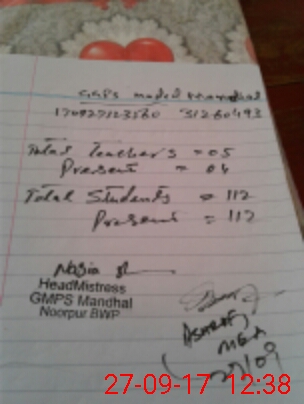 GGPS model Mandhal
170927123560 31260493
Total Teachers = 05
Present = 04
Total Students = 112
Present = 112
Nazia
HeadMistress
GMPS Mandhal
Noorpur BWP
Ashraf
MEA
27/09
27-09-17 12:38